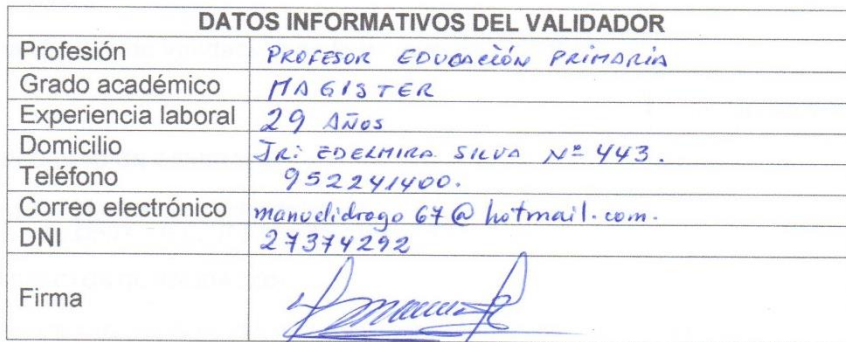 DATOS INFORMATIVOS DEL VALIDADOR
Profesión PROFESOR EDUCACIÓN PRIMARIA
Grado académico MAGISTER
Experiencia laboral 29 AÑOS
Domicilio JR: EDELMIRA SILVA Nº 443.
Teléfono 952241400.
Correo electrónico manuelidrogo67@hotmail.com.
DNI 27374292
Firma